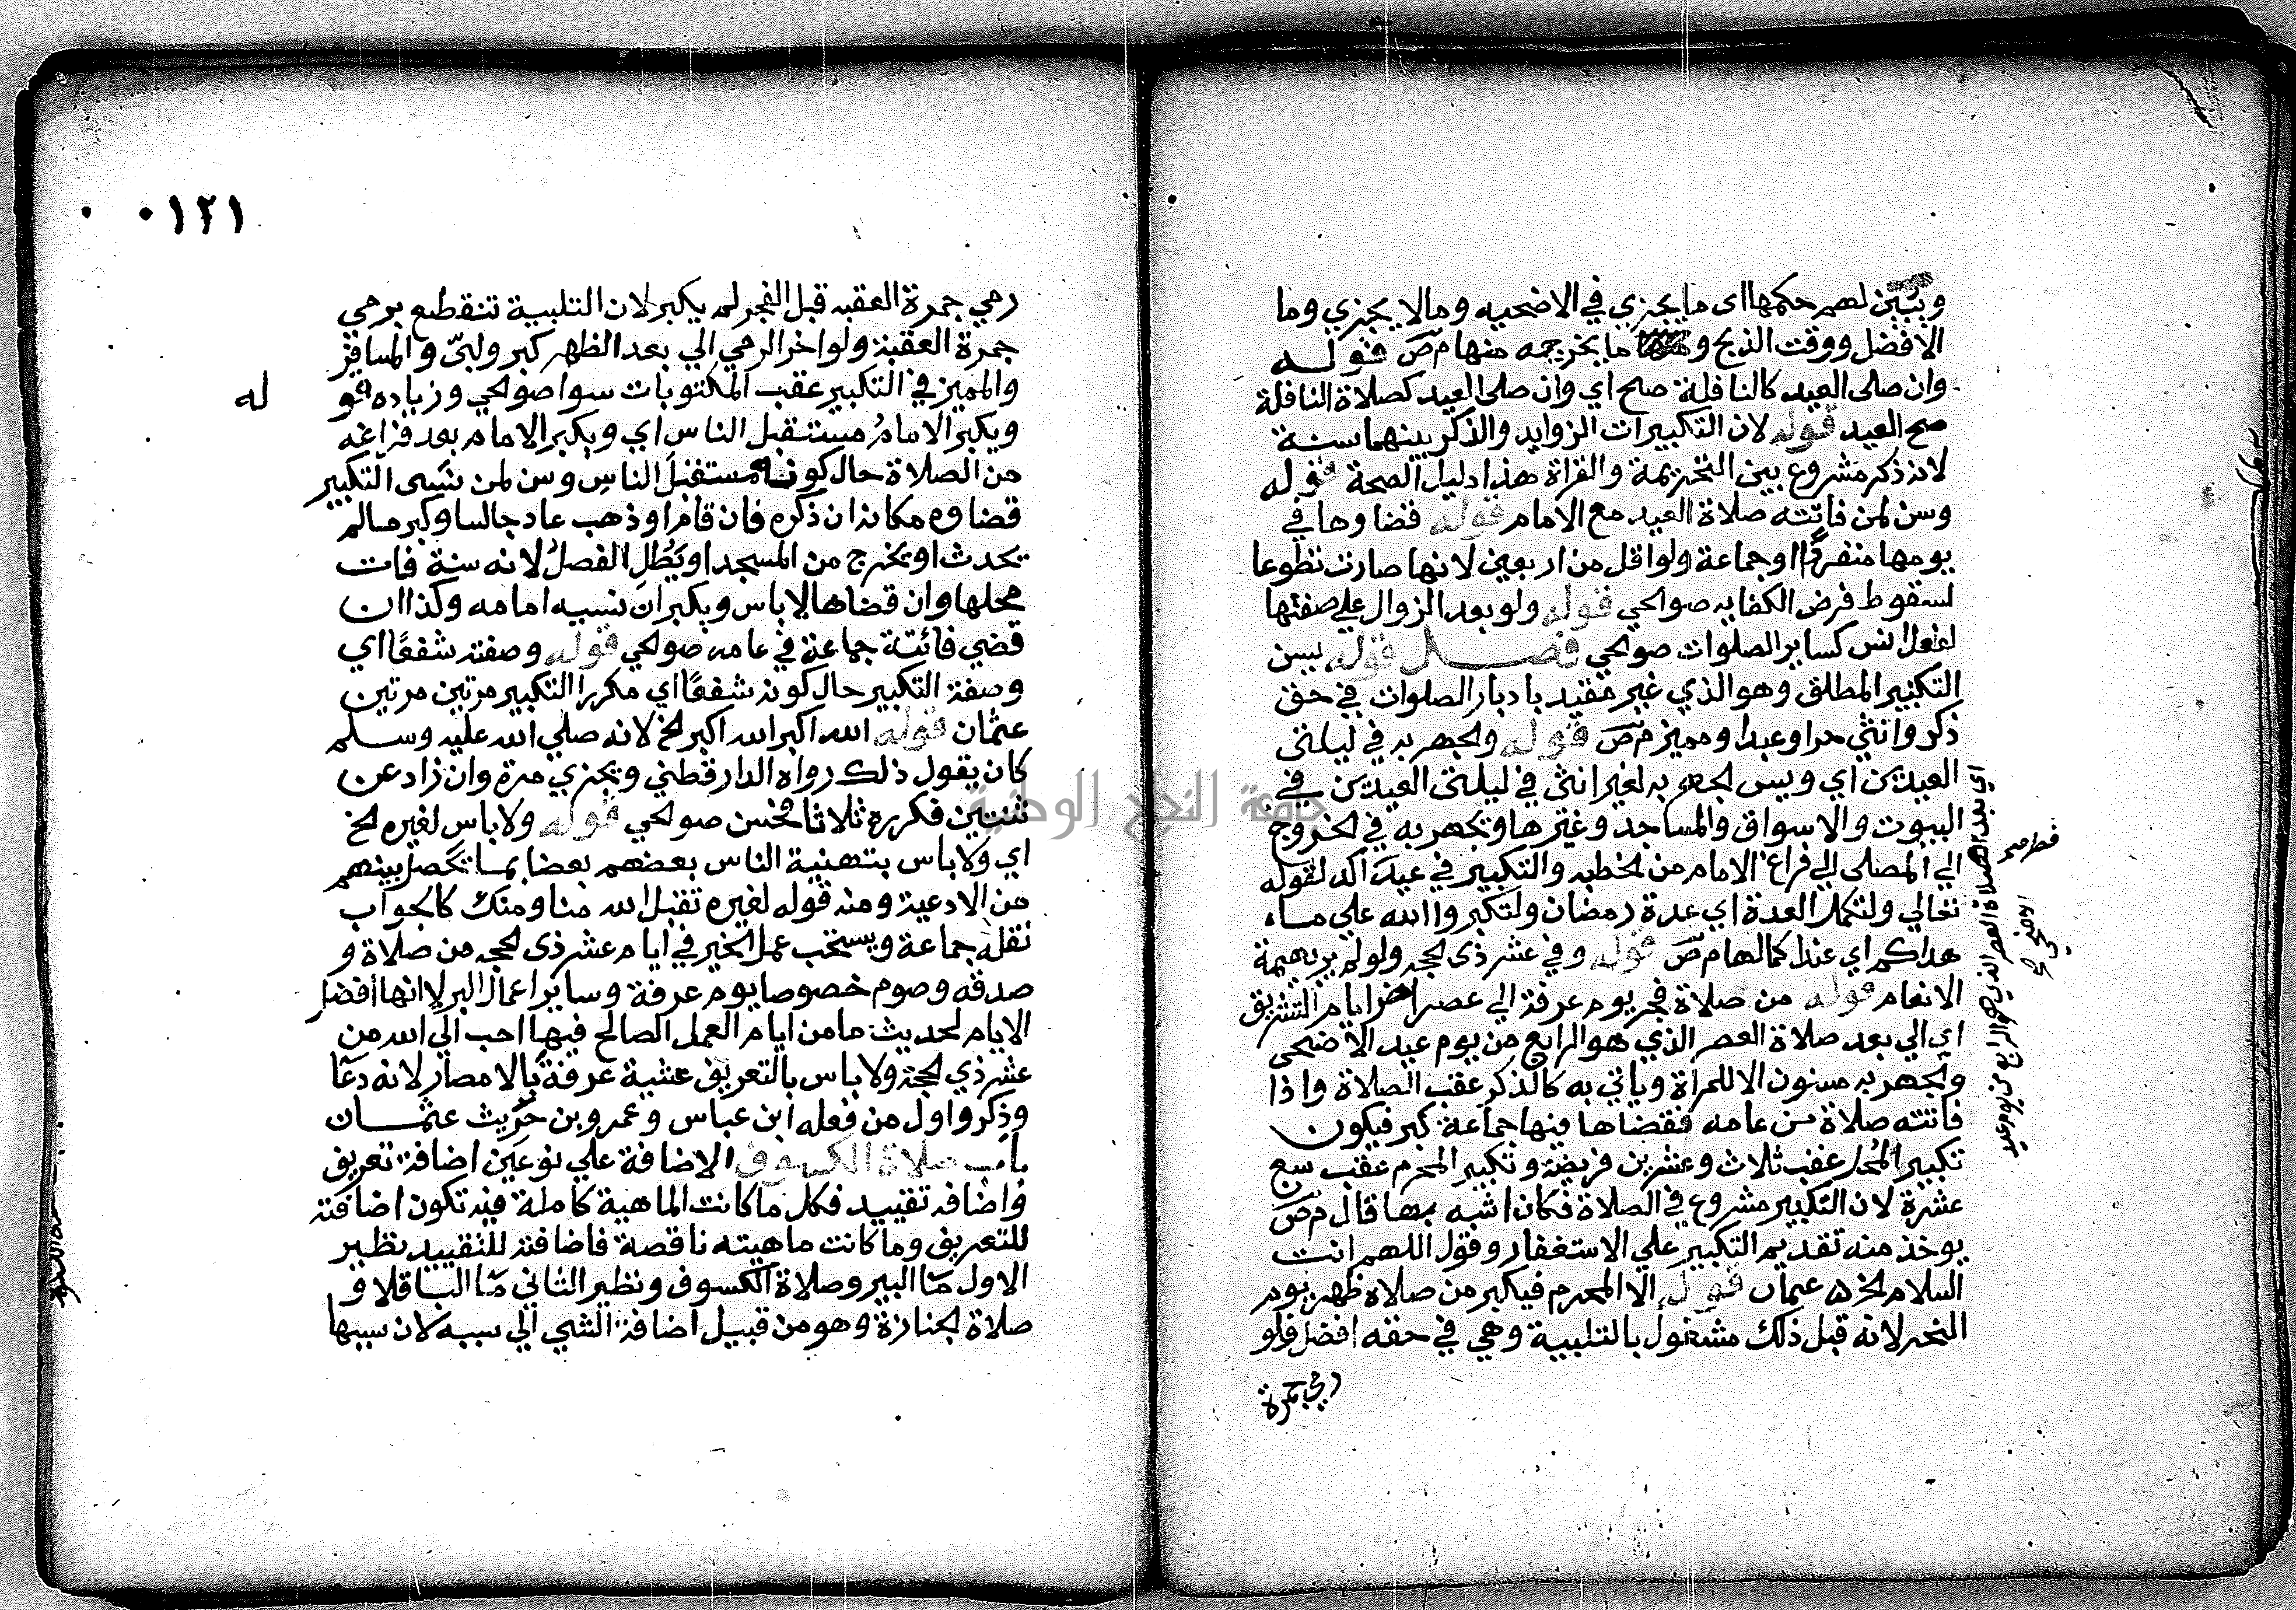 ويبين لهم حكمها اى ما يجزي في الاضحيه ومالا يجزي وما
الافضل ووقت الذبح و ما يخرجه منها م ص قوله
وان صلى العيد كالنافلة صح اي وان صلى العيد كصلاة النافلة
صح العيد قوله لان التكبيرات الزوايد والذكر بينهما سنة
لانه ذكر مشروع بين التحريمة والقراة هذا دليل الصحة قوله
وسن لمن فاتته صلاة العيد مع الامام قوله قضاوها في
يومها منفردًا او جماعة ولو اقل من اربعين لانها صارت تطوعا
لسقوط فرض الكفايه صوالحي قوله ولو بعد الزوال علي صفتها
لفعل انس كساير الصلوات صوالحي فصل قوله يسن
التكبير المطلق وهو الذي غير مقيد بادبار الصلوات في حق
ذكر وانثي حر او عبد او مميز م ص قوله والجهر به في ليلتى
العيدين اي ويسن الجهر به لغير انثى في ليلتى العيدين في
البيوت والاسواق والمساجد وغيرها ويجهر به في الخروج
الي المصلى الي فراغ الامام من الخطبه والتكبير في عيد اكد لقوله
فطر صح
تعالي ولتكملوا العدة اي عدة رمضان ولتكبروا الله علي ما
هداكم اي عند اكمالها م ص قوله وفي عشر ذى الحجه ولو لم ير بهيمة
الانعام قوله من صلاة فجر يوم عرفة الي عصر اخر ايام التشريق
اي الي بعد صلاة العصر الذي هو الرابع من يوم عيد الاضحى
والجهر به مسنون الا للمراة وياتي به كالذكر عقب الصلاة واذا
فاتته صلاة من عامه فقضاها فيها جماعة كبر فيكون
تكبير المُحل عقب ثلاث وعشرين فريضة وتكبير المحرم عقب سبع
عشرة لان التكبير مشروع في الصلاة فكان اشبه بها قال م ص
يوخذ منه تقديم التكبير علي الاستغفار وقول اللهم انت
السلام الخ ه عثمان قوله الا المحرم فيكبر من صلاة ظهر يوم
النحر لانه قبل ذلك مشغول بالتلبية وهي في حقه افضل فلو
رمي جمرة
اي بعد صلاة العصر الذي هو الرابع من يوم عيد
الاضحى صح
٠١٢١
رمي جمرة العقبه قبل الفجر لم يكبر لان التلبية تنقطع برمي
جمرة العقبة ولو اخر الرمي الي بعد الظهر كبر ولبىّ والمسافر
والمميز في التكبير عقب المكتوبات سوا صوالحي وزياده قو
له
ويكبر الامامُ مستقبل الناس اي ويكبر الامام بعد فراغه
من الصلاة حال كونه مستقبل الناس وسن لمن نسى التكبير
قضاوه مكانه ان ذكره فان قام او ذهب عاد جالسا وكبر مالم
يحدث او يخرج من المسجد او يَطُل الفصلُ لانه سنة فات
محلها وان قضاها لا باس ويكبر ان نسيه امامه وكذا ان
قضي فائتة جماعة في عامه صوالحي قوله وصفته شفعًا اي
وصفة التكبير حال كونه شفعًا اي مكررا التكبير مرتين مرتين
عثمان قوله الله اكبر الله اكبر الخ لانه صلي الله عليه وسلم
كان يقول ذلك رواه الدارقطني ويجزي مرة وان زاد عن
ثنتين فكرره ثلاثا فحسن صوالحي قوله ولا باس لغيره الخ
اي ولا باس بتهنية الناس بعضهم بعضا بما تحصل بينهم
من الادعية ومنه قوله لغيره تقبل الله منا ومنك كالجواب
نقله جماعة ويستحب عمل الخير في ايام عشر ذى الحجه من صلاة و
صدقه وصوم خصوصا يوم عرفة وساير اعمال البر لانها افضل
الايام لحديث ما من ايام العمل الصالح فيها احب الي الله من
عشر ذي الحجة ولا باس بالتعريف عشية عرفة بالامصار لانه دعا
وذكر واول من فعله ابن عباس وعمرو بن حريث عثمان
باب صلاة الكسوف الاضافة علي نوعين اضافة تعريف
واضافه تقييد فكل ما كانت الماهية كاملة فيه تكون اضافته
للتعريف وما كانت ماهيته ناقصة فاضافته للتقييد نظير
الاول ما البير وصلاة الكسوف ونظير الثاني ما الباقلا و
صلاة الجنازة وهو من قبيل اضافة الشي الي سببه لان سببها
جامعة النجاح الوطنية